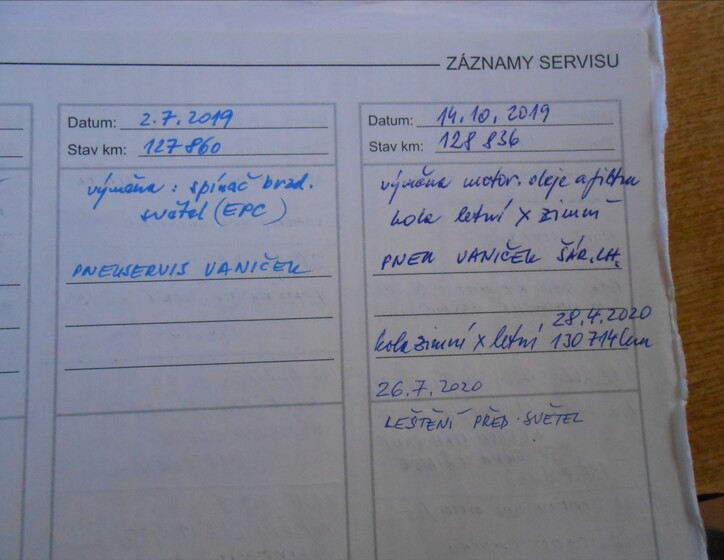 ZÁZNAMY SERVISU
Datum: 2.7.2019
Stav km: 127 860
výměna: spínač brzd.
světel (EPC)
PNEUSERVIS VANIČEK
Datum: 14.10.2019
Stav km: 128 836
výměna motor. oleje a filtru
kola letní x zimní
PNEU VANIČEK ŠÁR.LH.
28.4.2020
kola zimní x letní 130 714 km
26.7.2020
LEŠTĚNÍ PŘED. SVĚTEL